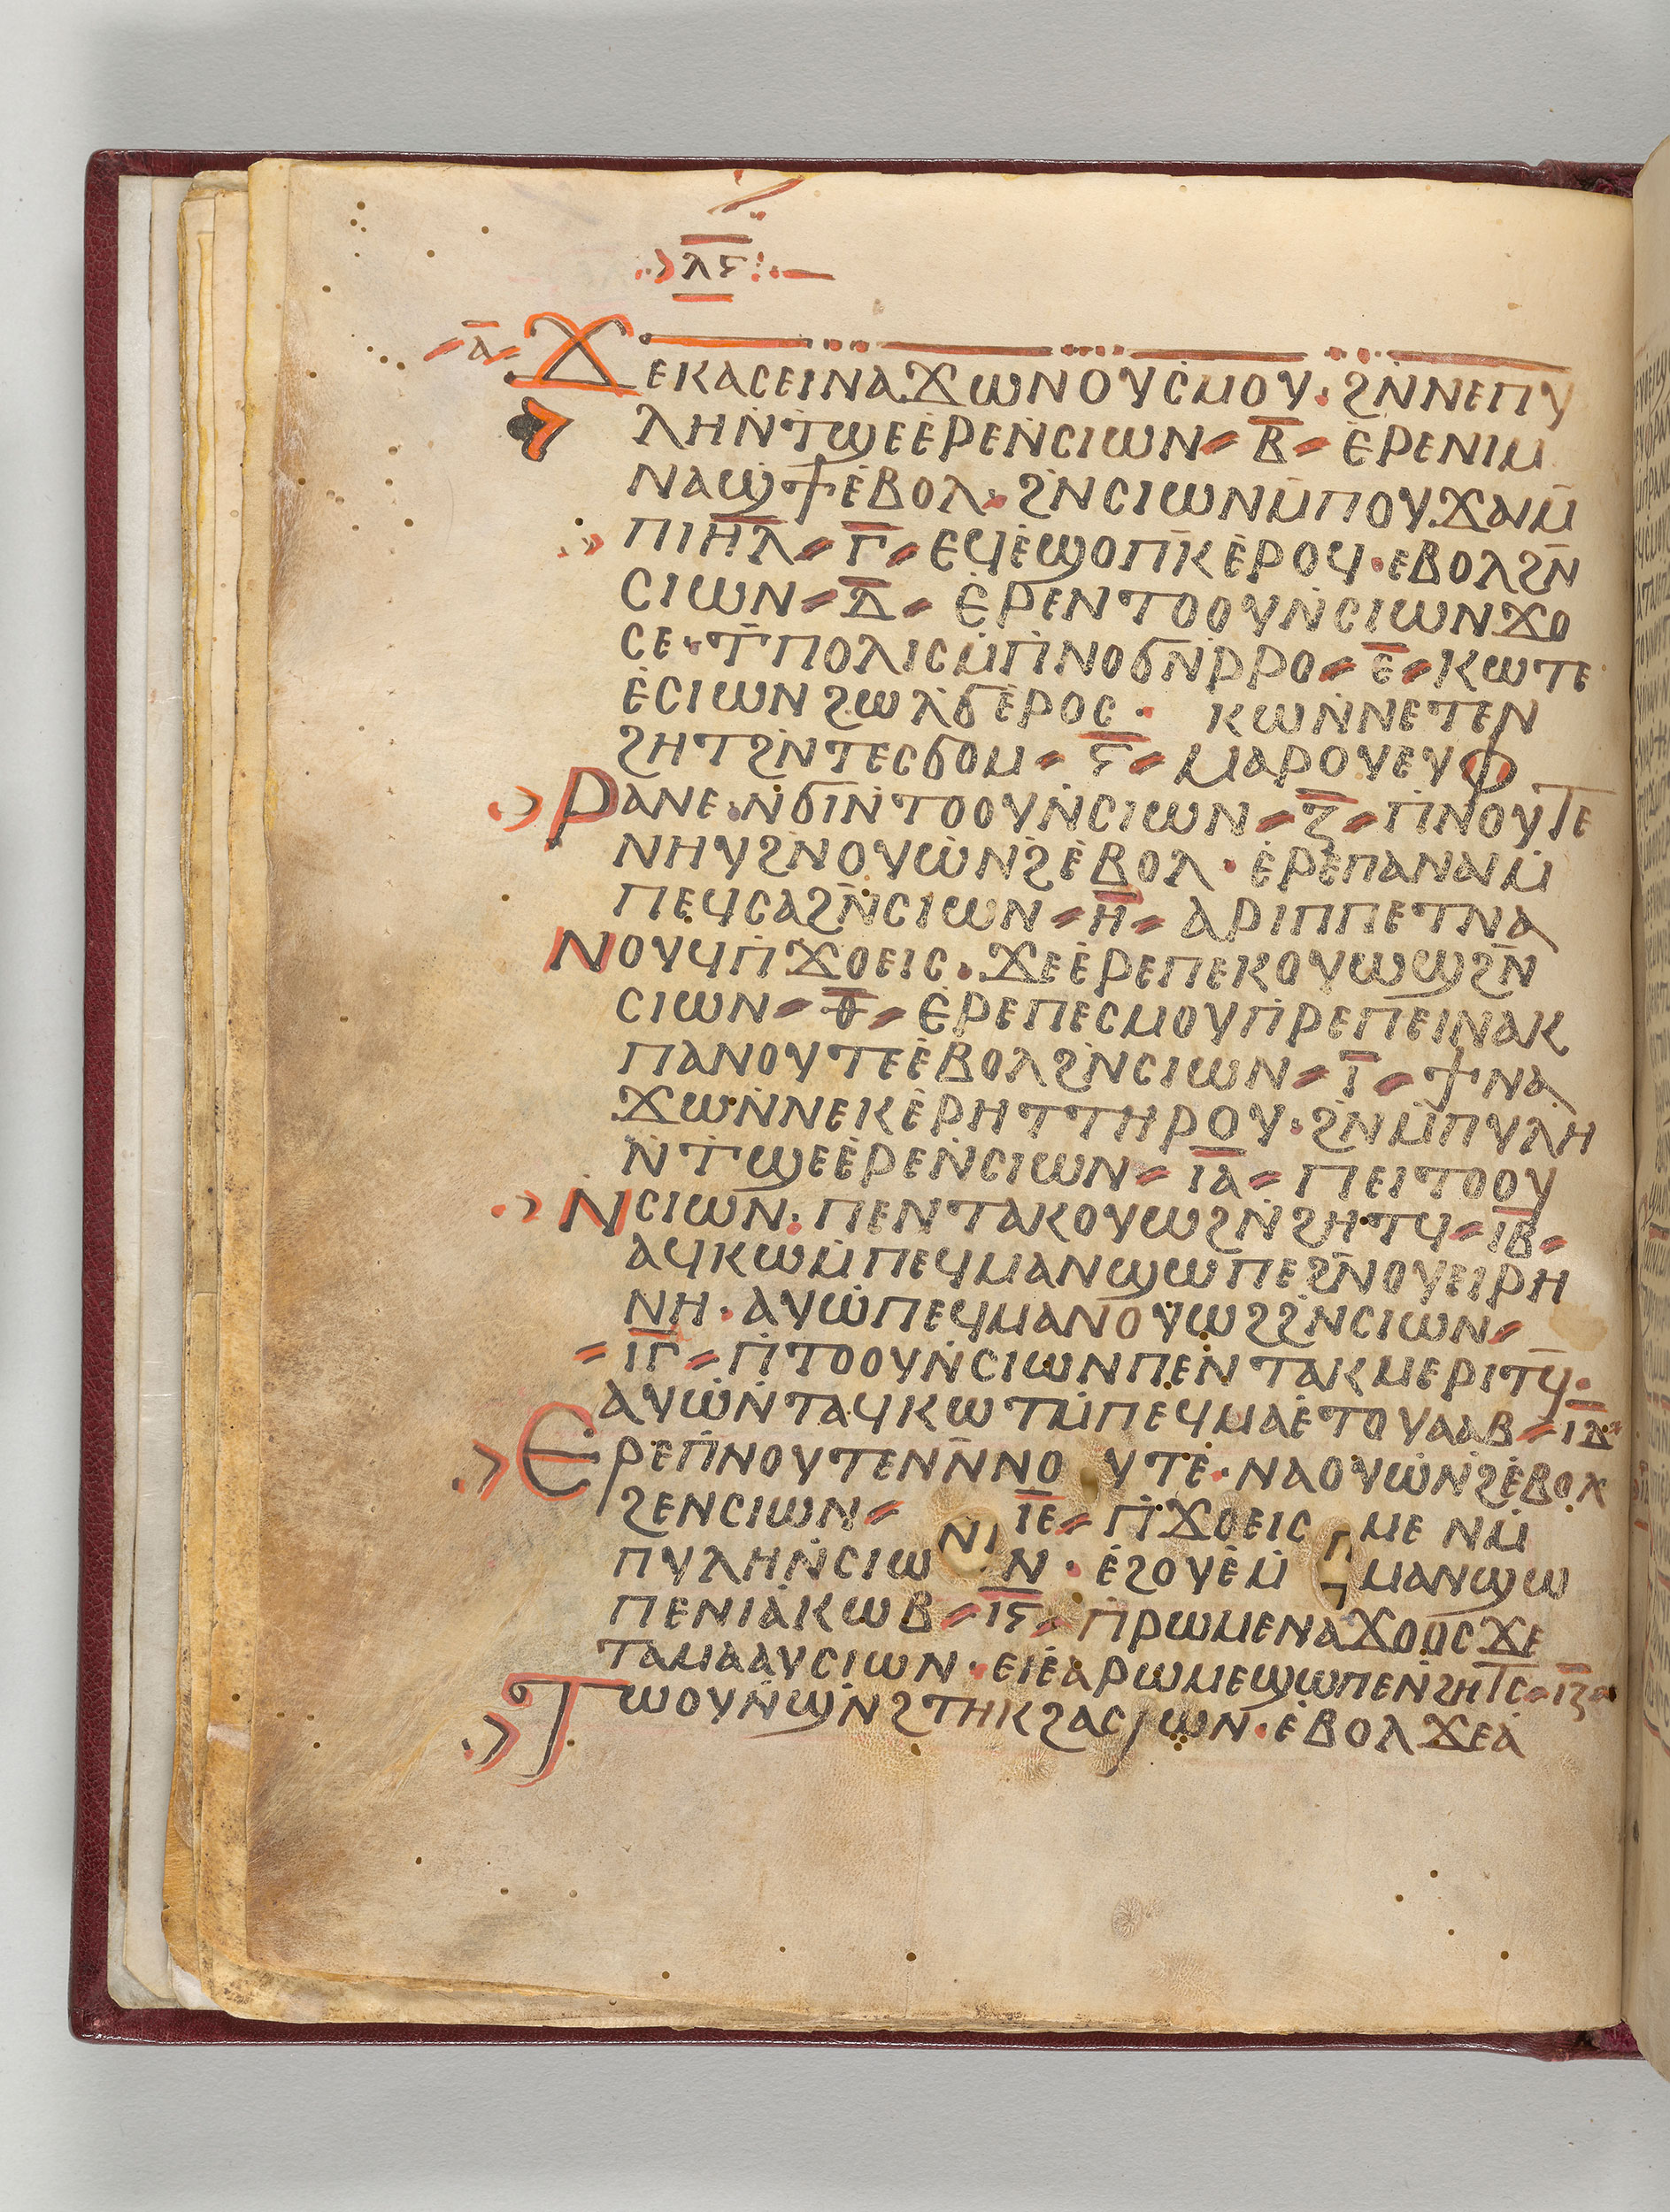 ⲗⲋ
ⲁ ϫⲉⲕⲁⲥⲉⲓⲛⲁϫⲱⲛⲟⲩⲥⲙⲟⲩ · ϩⲛ̇ⲛⲉⲡⲩ
ⲗⲏⲛ̇ⲧϣⲉⲉ̇ⲣⲉⲛ̇ⲥⲓⲱⲛ ⲃ̅ ⲉ̇ⲣⲉⲛⲓⲙ
ⲛⲁϣϯⲉ̇ⲃⲟⲗ · ϩⲛ̇ⲥⲓⲱⲛⲙ̇ⲡⲟⲩϫⲁⲓⲙ̅
ⲡⲓⲏ̅ⲗ̅ ⲅ̅ ⲉϥⲉ̇ϣⲟⲡⲕ̅ⲉ̇ⲣⲟϥ · ⲉⲃⲟⲗϩⲛ̅
ⲥⲓⲱⲛ ⲇ̅ ⲉ̇ⲣⲉⲛⲧⲟⲟⲩⲛ̇ⲥⲓⲱⲛϫⲟ
ⲥⲉ · ⲧ̇ⲡⲟⲗⲓⲥⲙ̇ⲡ̇ⲛⲟϭⲛ̅ⲣⲣⲟ ⲉ̅ ⲕⲱⲧⲉ
ⲉ̇ⲥⲓⲱⲛϩⲱⲗϭⲉ̇ⲣⲟⲥ · ⲕⲱⲛ̇ⲛⲉⲧⲉⲛ
ϩⲏⲧϩⲛ̇ⲧⲉⲥϭⲟⲙ ⲋ̅ ⲙⲁⲣⲟⲩⲉⲩⲫ
ⲣⲁⲛⲉ · ⲛ̇ϭⲓⲛ̇ⲧⲟⲟⲩⲛ̇ⲥⲓⲱⲛ ⲍ̅ ⲡ̇ⲛⲟⲩⲧⲉ
ⲛⲏⲩϩⲛ̇ⲟⲩⲱ̇ⲛϩ̇ⲉ̇ⲃⲟⲗ · ⲉ̇ⲣⲉⲡⲁⲛⲁⲓⲙ̅
ⲡⲉϥⲥⲁϩⲛ̅ⲥⲓⲱⲛ ⲏ̅ ⲁⲣⲓⲡⲡⲉⲧⲛⲁ
ⲛⲟⲩϥⲡ̇ϫⲟⲉⲓⲥ · ϫⲉⲉ̇ⲣⲉⲡⲉⲕⲟⲩⲱϣϩⲛ̅
ⲥⲓⲱⲛ ⲑ̅ ⲉ̇ⲣⲉⲡⲉⲥⲙⲟⲩⲡ̇ⲣⲉⲡⲉⲓⲛⲁⲕ
ⲡⲁⲛⲟⲩⲧⲉⲉ̇ⲃⲟⲗϩⲛ̇ⲥⲓⲱⲛ ⲓ̅ ϯⲛⲁ
ϫⲱⲛ̇ⲛⲉⲕⲉ̇ⲣⲏⲧⲧⲏⲣⲟⲩ · ϩⲛ̇ⲙ̅ⲡⲩⲗⲏ
ⲛ̇ⲧ̇ϣⲉⲉ̇ⲣⲉⲛ̇ⲥⲓⲱⲛ ⲓ̅ⲁ̅ ⲡⲉⲓⲧⲟⲟⲩ
ⲛ̇ⲥⲓⲱⲛ · ⲡⲉⲛⲧⲁⲕⲟⲩⲱϩⲛ̇ϩⲏⲧϥ ⲓ̅ⲃ̅
ⲁϥⲕⲱⲙ̇ⲡⲉϥⲙⲁⲛϣⲱⲡⲉϩⲛ̅ⲟⲩⲉⲓⲣⲏ
ⲛⲏ · ⲁⲩⲱ̇ⲡⲉϥⲙⲁⲛⲟⲩⲱϩϩⲛ̇ⲥⲓⲱⲛ
ⲓ̅ⲅ̅ ⲡ̇ⲧⲟⲟⲩⲛ̇ⲥⲓⲱⲛⲡⲉⲛⲧⲁⲕⲙⲉⲣⲓⲧϥ̅ ·
ⲁⲩⲱ̇ⲛ̇ⲧⲁϥⲕⲱⲧⲙ̇ⲡⲉϥⲙⲁⲉ̇ⲧⲟⲩⲁⲁⲃ ⲓ̅ⲇ̅
ⲉⲣⲉⲡ̅ⲛⲟⲩⲧⲉⲛⲛ̅ⲛⲟⲩⲧⲉ · ⲛⲁⲟⲩⲱ̇ⲛ̇ϩⲉ̇ⲃⲟⲗ
ϩⲉⲛⲥⲓⲱⲛ ⲓ̅ⲉ̅ ⲡ̇ϫⲟⲉⲓⲥ ⲙⲉ ⲛⲙ̅
ⲡⲩⲗⲏⲛ̇ⲥⲓⲱⲛ · ⲉ̇ϩⲟⲩⲉ̇ⲙ̅ ⲙⲁⲛϣⲱ
ⲡⲉⲛⲓⲁ̇ⲕⲱⲃ ⲓ̅ⲋ̅ ⲡ̇ⲣⲱⲙⲉⲛⲁϫⲟⲟⲥϫⲉ
ⲧⲁⲙⲁⲁⲩⲥⲓⲱⲛ · ⲉⲓⲉ̇ⲁⲣⲱⲙⲉϣⲱⲡⲉⲛ̇ϩⲏⲧⲥ ⲓ̅ⲍ̅
ⲧⲱⲟⲩⲛ̅ϣⲛ̇ϩⲧⲏⲕϩⲁⲥⲓⲱⲛ · ⲉ̇ⲃⲟⲗϫⲉⲁ̇